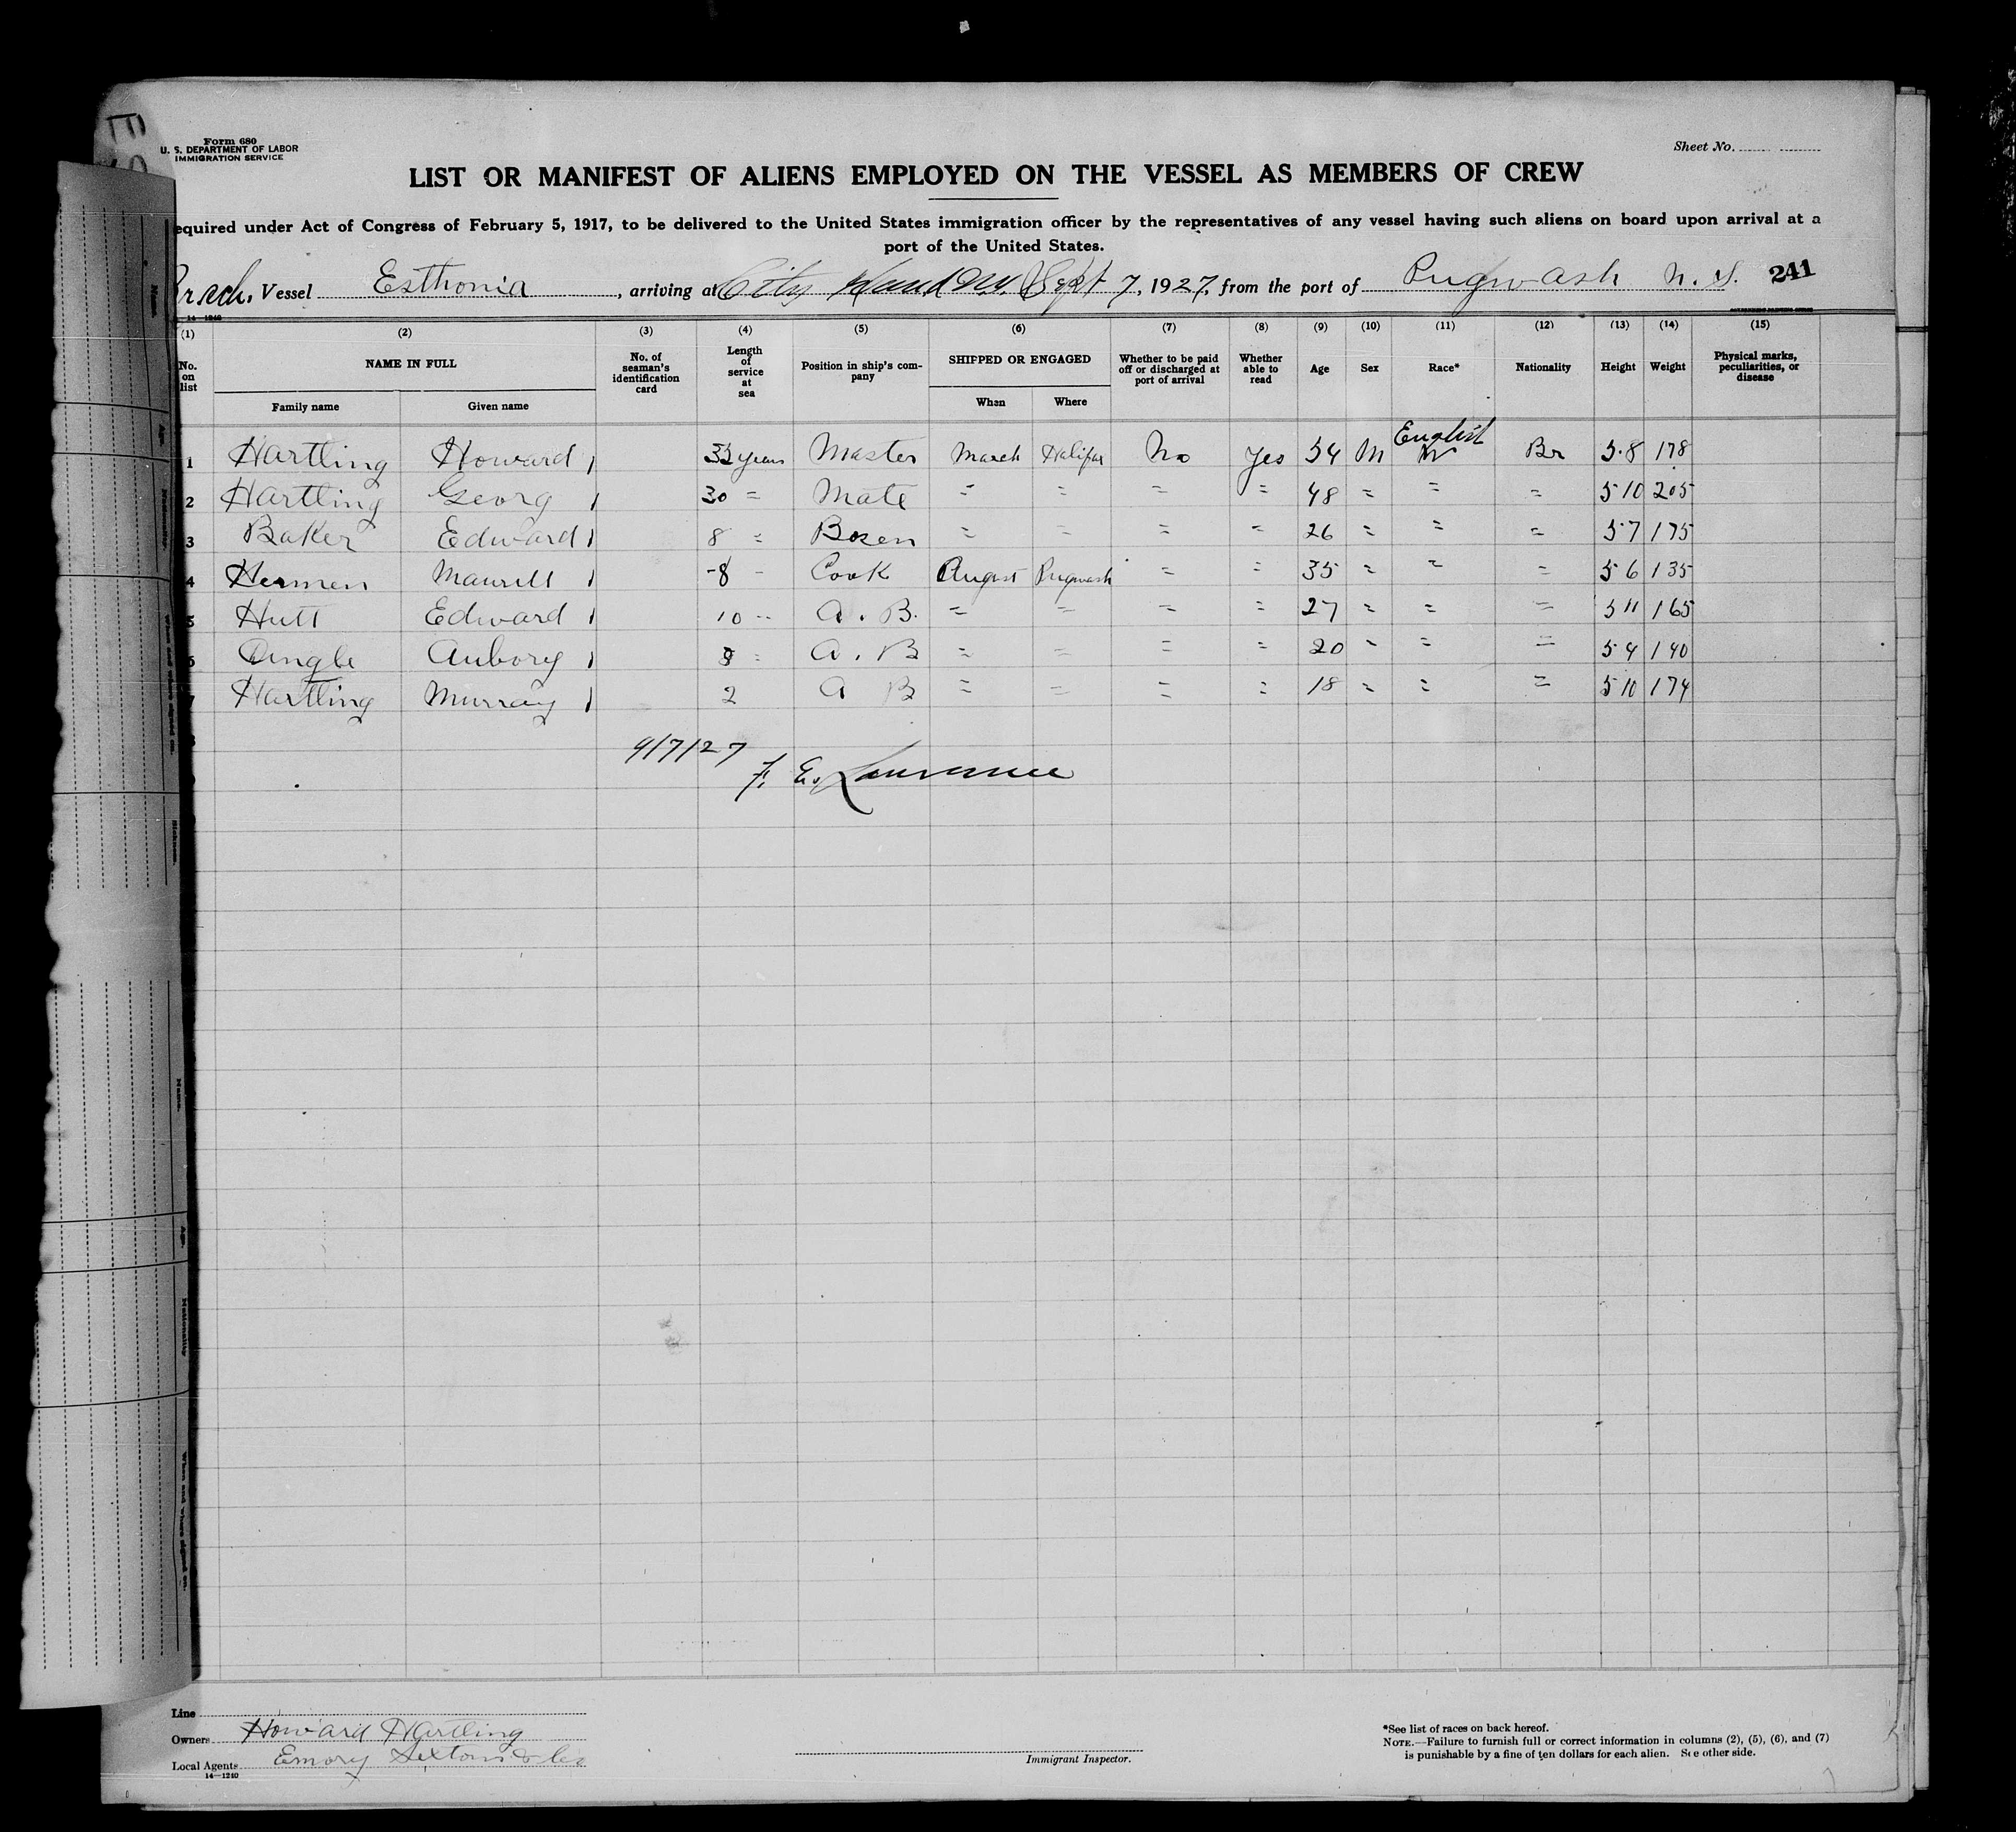 Form 680
U. S. DEPARTMENT OF LABOR
IMMIGRATION SERVICE
Sheet No.
LIST OR MANIFEST OF ALIENS EMPLOYED ON THE VESSEL AS MEMBERS OF CREW
equired under Act of Congress of February 5, 1917, to be delivered to the United States immigration officer by the representatives of any vessel having such aliens on board upon arrival at a
port of the United States.
Vessel Esthonia, arriving at City Sept 7, 1927, from the port of Pugwash N. S. 241
14—1240
(1) (2) (3) (4) (5) (6) (7) (8) (9) (10) (11) (12) (13) (14) (15)
No. on list NAME IN FULL Family name Given name No. of seaman's identification card Length of service at sea Position in ship's company SHIPPED OR ENGAGED When Where Whether to be paid off or discharged at port of arrival Whether able to read Age Sex Race* Nationality Height Weight Physical marks, peculiarities, or disease
1 Hartling Howard years Master March Halifax No Yes 54 M English Br 5.8 178
2 Hartling Georg 30 = Mate = = = = 48 = = = 5 10 205
3 Baker Edward 8 = Bosen = = = = 26 = = = 5 7 175
4 Cook August Pugwash = = 35 = = = 5 6 135
5 Hutt Edward 10 A. B. = = = = 27 = = = 5 11 165
6 Dingle Aubory A. B = = = = 20 = = = 5 4 140
7 Hartling Murray 2 A B = = = = 18 = = = 5 10 174
9/7/27
F. E. Lawrence
Line
Owners Howard Hartling
Local Agents Emory Sexton & Co
14—1240
Immigrant Inspector.
*See list of races on back hereof.
NOTE.—Failure to furnish full or correct information in columns (2), (5), (6), and (7)
is punishable by a fine of ten dollars for each alien. See other side.